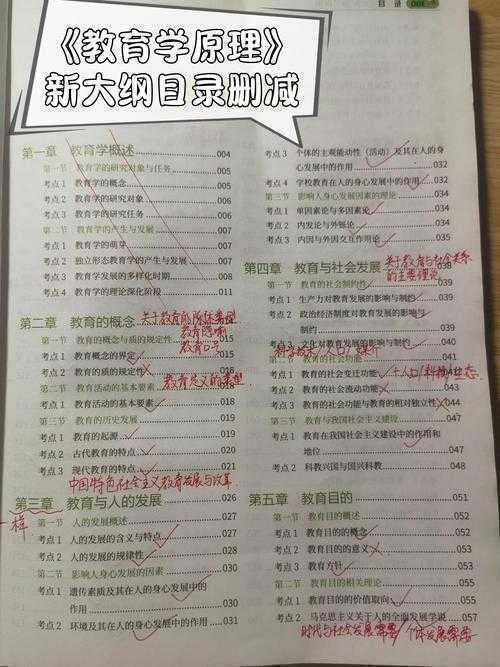 目 录
《教育学原理》
新大纲目录删减
第一章 教育学概述 ..... 004
第一节 教育学的研究对象与任务 ..... 005
考点1 教育学的概念 ..... 005
考点2 教育学的研究对象 ..... 005
考点3 教育学的研究任务 ..... 005
第二节 教育学的产生与发展 ..... 007
考点1 教育学的萌芽 ..... 007
考点2 独立形态教育学的产生与发展 ..... 007
考点3 教育学发展的多样化时期 ..... 008
考点4 教育学的理论深化阶段 ..... 011
第二章 教育的概念
关于教育的陈述类型
教育隐喻
教育口号
第一节 教育的概念与质的规定性 ..... 015
考点1 教育概念的界定 ..... 015
考点2 教育的质的规定性 ..... 016
教育定义的类型
第二节 教育活动的基本要素 ..... 018
考点1 教育活动的基本要素 ..... 018
第三节 教育的历史发展 ..... 019
考点1 教育的起源 ..... 019
考点2 古代教育的特点 ..... 020
考点3 现代教育的特点 ..... 021
中国特色社会主义教育发展与改革
第三章 教育与人的发展 ..... 026
一样
第一节 人的发展概述 ..... 027
考点1 人的发展的含义与特点 ..... 027
考点2 人的发展的规律性 ..... 028
第二节 影响人身心发展的因素 ..... 030
考点1 遗传素质及其在人的身心发展中的
作用 ..... 030
考点2 环境及其在人的身心发展中的作用 ..... 031
考点3 个体的主观能动性(活动)及其在人的身
心发展中的作用 ..... 032
考点4 学校教育在人的身心发展中的作用 ..... 032
第三节 影响人身心发展因素的理论 ..... 034
考点1 单因素论与多因素论 ..... 034
考点2 内发论与外铄论 ..... 034
考点3 内因与外因交互作用论 ..... 035
第四章 教育与社会发展 ..... 038
关于教育与社会关系
的主要理论
第一节 教育的社会制约性 ..... 039
考点1 生产力对教育发展的影响与制约 ..... 039
考点2 政治经济制度对教育发展的影响与
制约 ..... 039
考点3 文化对教育发展的影响与制约 ..... 040
科学技术/人口/媒介
第二节 教育的社会功能 ..... 041
考点1 教育的社会变迁功能
人口/科技/生态.
考点2 教育的社会流动功能 ..... 043
考点3 教育的社会功能与教育的相对独立性 ..... 044
第三节 教育与我国社会主义建设 ..... 047
考点1 教育在我国社会主义建设中的作用和
地位 ..... 047
考点2 科教兴国与国兴科教 ..... 048
第五章 教育目的 ..... 051
第一节 教育目的概述 ..... 052
考点1 教育目的的概念 ..... 052
考点2 教育目的的意义 ..... 053
考点3 教育方针 ..... 053
第二节 教育目的相关理论 ..... 055
考点1 教育目的的价值取向 ..... 055
考点2 马克思主义关于人的全面发展学说 ..... 057
时代与社会发展需要/个体发展需要